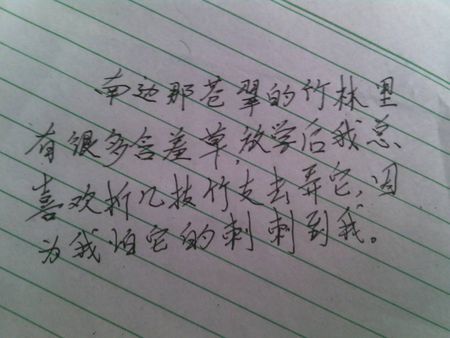 南边那苍翠的竹林里
有很多含羞草,放学后我总
喜欢折几枝竹支去弄它,因
为我怕它的刺刺到我。